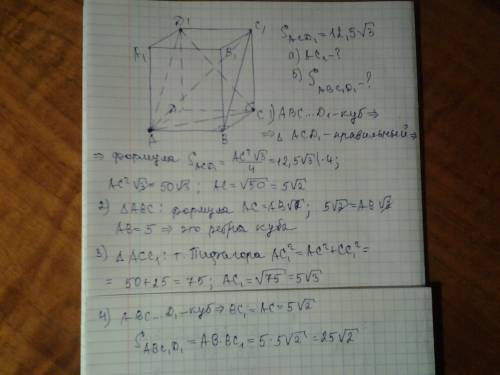 D1 C1
A1 B1
D C
A B
S_ACD₁ = 12,5√3
а) AC₁ - ?
б) S_ABC₁D₁ - ?
1) ABC...D₁ - куб ⇒
⇒ △ ACD₁ - правильный ⇒
⇒ формула S_ACD₁ = AC²√3/4 = 12,5√3 | ·4;
AC²√3 = 50√3; AC = √50 = 5√2
2) △ABC: формула AC = AB√2; 5√2 = AB√2
AB = 5 ⇒ это ребра куба
3) △ACC₁: т. Пифагора AC₁² = AC² + CC₁² =
= 50 + 25 = 75; AC₁ = √75 = 5√3
4) ABC...D₁ - куб ⇒ BC₁ = AC = 5√2
S_ABC₁D₁ = AB · BC₁ = 5 · 5√2 = 25√2